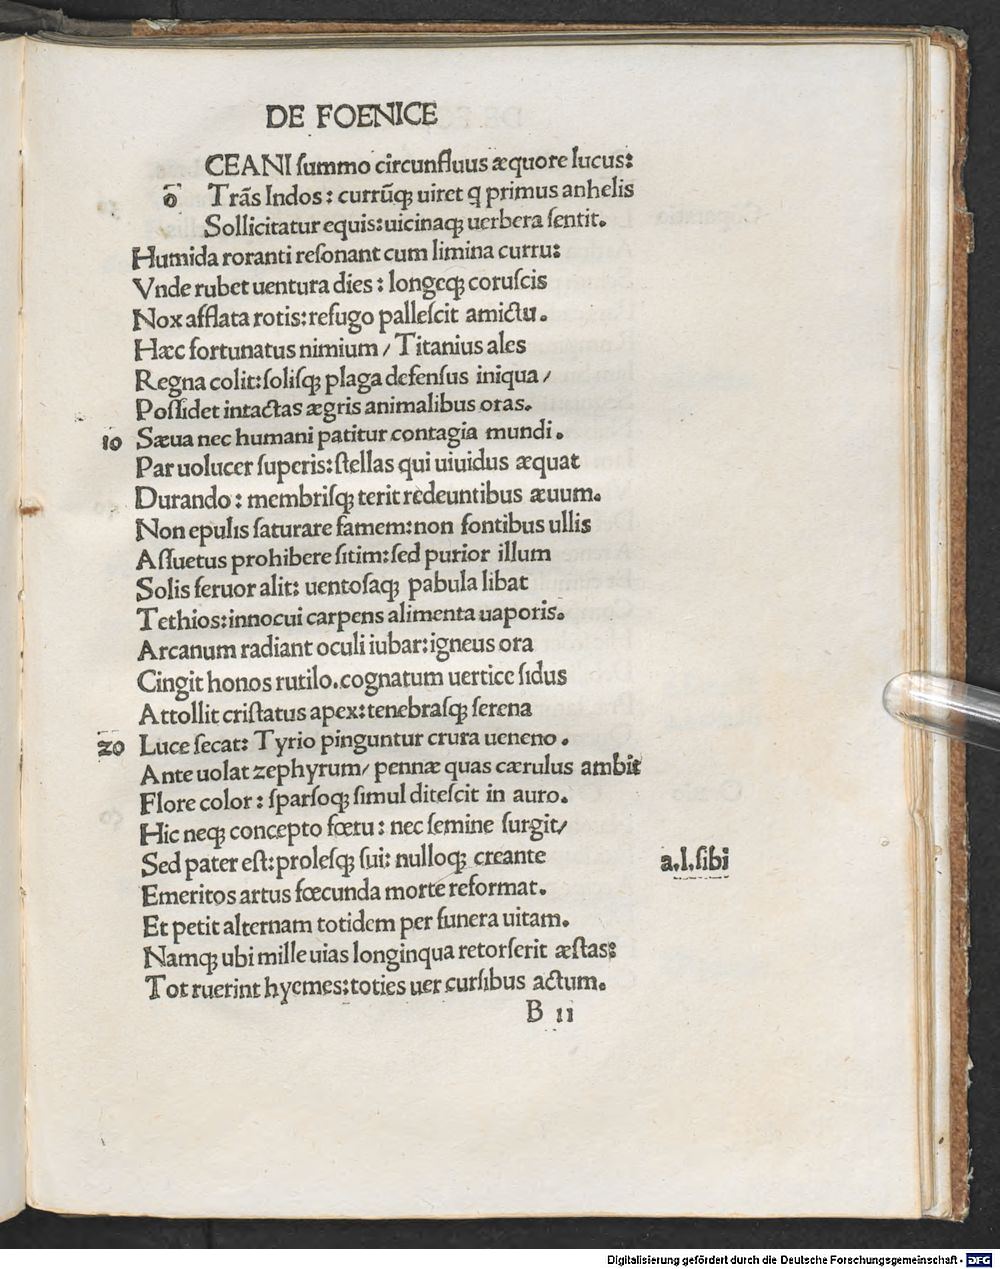 DE FOENICE
CEANI summo circunfluus æquore lucus:
ō Trās Indos: currūq; uiret q primus anhelis
Sollicitatur equis: uicinaq; uerbera sentit.
Humida roranti resonant cum limina curru:
Vnde rubet uentura dies: longeq; coruscis
Nox afflata rotis: refugo pallescit amictu.
Hæc fortunatus nimium / Titanius ales
Regna colit: solisq; plaga defensus iniqua /
Possidet intactas ægris animalibus oras.
10 Sæua nec humani patitur contagia mundi.
Par uolucer superis: stellas qui uiuidus æquat
Durando: membrisq; terit redeuntibus æuum.
Non epulis saturare famem: non fontibus ullis
Assuetus prohibere sitim: sed purior illum
Solis feruor alit: uentosaq; pabula libat
Tethios: innocui carpens alimenta uaporis.
Arcanum radiant oculi iubar: igneus ora
Cingit honos rutilo. cognatum uertice sidus
Attollit cristatus apex: tenebrasq; serena
20 Luce secat: Tyrio pinguntur crura ueneno.
Ante uolat zephyrum / pennæ quas cærulus ambit
Flore color: sparsoq; simul ditescit in auro.
Hic neq; concepto fœtu: nec semine surgit /
Sed pater est: prolesq; sui: nulloq; creante a.l.sibi
Emeritos artus fœcunda morte reformat.
Et petit alternam totidem per funera uitam.
Namq; ubi mille uias longinqua retorserit æstas:
Tot ruerint hyemes: toties uer cursibus actum.
B ii
Digitalisierung gefördert durch die Deutsche Forschungsgemeinschaft - DFG